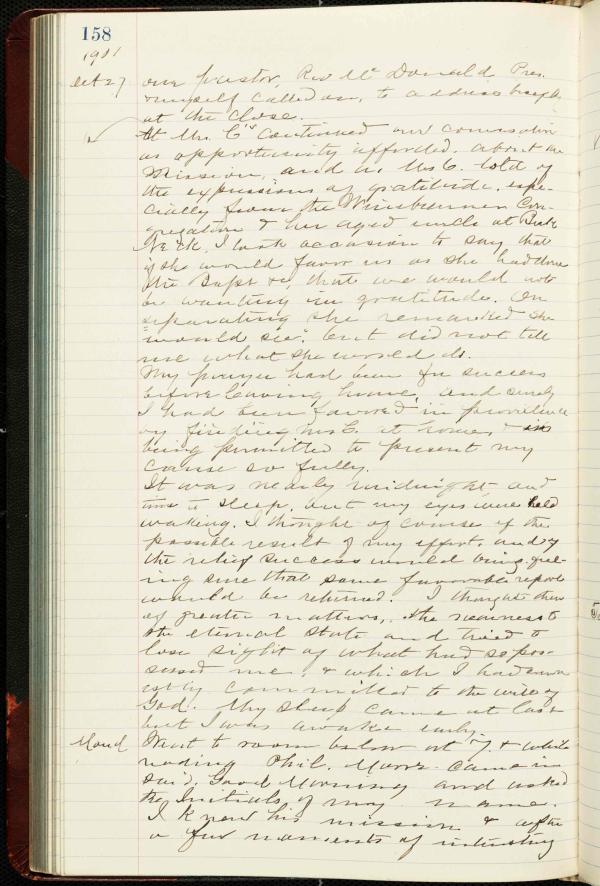 158
1911
Oct 27 our pastor, Rev Mc Donald, Pres.
& myself called on, to address briefly
at the close.
At Mrs. C's continued our conversation
as opportunity afforded, about the
Mission, and as Mrs C. told of
the expressions of gratitude, espe-
cially from the Con-
gregation & her aged uncle at Buck
Neck, I took occasion to say that
if she would favor us as she had done
the Bapt &c, that we would not
be wanting in gratitude. On
separating she remarked "she
would see", but did not tell
me what she would do.
My prayer had been for success
before leaving home, and surely
I had been favored in providence
by finding Mrs C. at home, & in
being permitted to present my
cause so fully.
It was nearly midnight and
time to sleep, but my eyes were held
waking. I thought of course of the
possible result of my effort, and of
the relief success would bring, feel-
ing sure that some favorable report
would be returned. I thought then
of greater matters, the nearness to
the eternal state and tried to
lose sight of what had so pos-
sessed me, & which I had
committed to the will of
God. My sleep came at last
but I was awake early.
Mond Went to room below at 7, & while
reading Phil. Moore came in
said, Good Morning and asked
the Initials of my name.
I knew his mission & after
a few moments of interesting